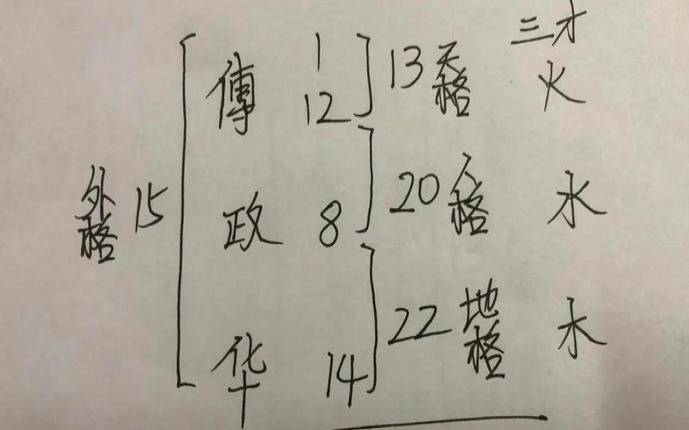 三才
1
傅 12 13 天格 火
外格 15 政 8 20 人格 水
华 14 22 地格 木